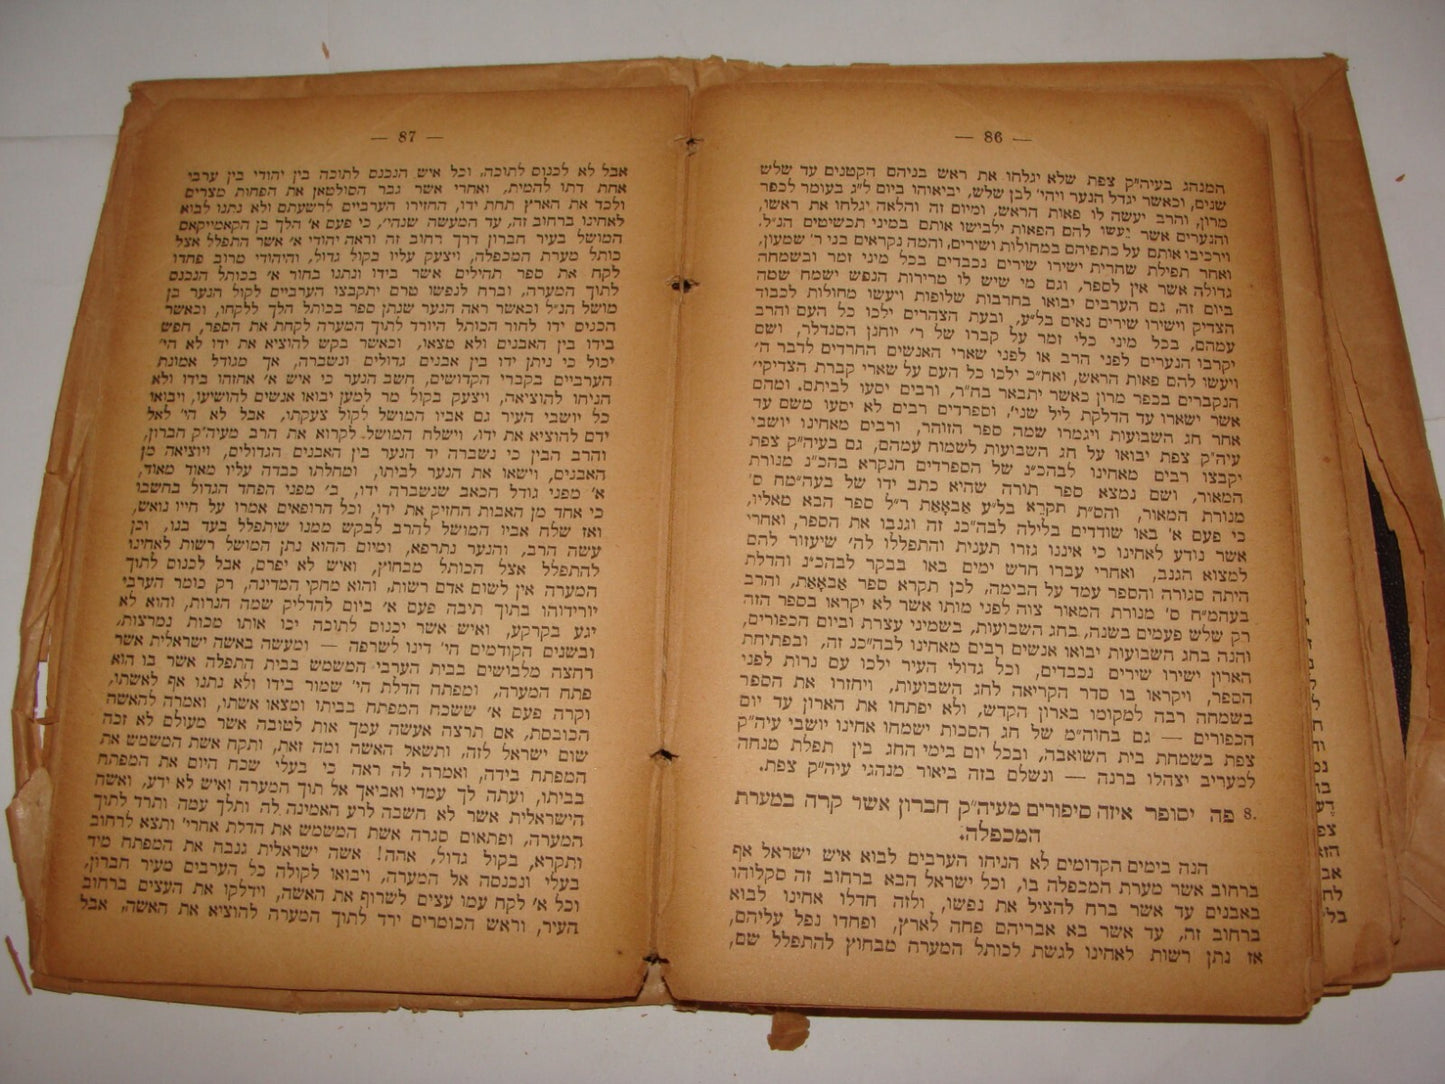 — 86 —
המנהג בעיה״ק צפת שלא יגלחו את ראש בניהם הקטנים עד שלש
שנים, וכאשר יגדל הנער ויהי׳ לבן שלש, יביאוהו ביום ל״ג בעומר לכפר
מרון, והרב יעשה לו פאות הראש, ומיום זה והלאה יגלחו את ראשו,
והנערים אשר יעשו להם הפאות ילבישו אותם במיני תכשיטים הנ״ל.
וירכיבו אותם על כתפיהם במחולות ושירים, והמה נקראים בני ר׳ שמעון,
ואחר תפילת שחרית ישירו שירים נכבדים בכל מיני זמר ובשמחה
גדולה אשר אין לספר, וגם מי שיש לו מרירות הנפש ישמח שמה
ביום זה, גם הערבים יבואו בחרבות שלופות ויעשו מחולות לכבוד
הצדיק וישירו שירים נאים בל״ע, ובעת הצהרים ילכו כל העם והרב
עמהם, בכל מיני כלי זמר על קברו של ר׳ יוחנן הסנדלר, ושם
יקרבו הנערים לפני הרב או לפני שארי האנשים החרדים לדבר ה׳
ויעשו להם פאות הראש, ואח״כ ילכו כל העם על שארי קברת הצדיקי׳
הנקברים בכפר מרון כאשר יתבאר בח״ר, ורבים יסעו לביתם. ומהם
אשר ישארו עד הדלקת ליל שני׳, וספרדים רבים לא יסעו משם עד
אחר חג השבועות ויגמרו שמה ספר הזוהר, ורבים מאחינו יושבי
עיה״ק צפת יבואו על חג השבועות לשמוח עמהם, גם בעיה״ק צפת
יקבצו רבים מאחינו לבהכ״נ של הספרדים הנקרא בהכ״נ מנורת
המאור, ושם נמצא ספר תורה שהיא כתב ידו של בעה״מח ס׳
מנורת המאור, והס״ת תקרא בל״ע אבאאת ר״ל ספר הבא מאליו,
כי פעם א׳ באו שודדים בלילה לבה״כנ זה וגנבו את הספר, ואחרי
אשר נודע לאחינו כי איננו גזרו תענית והתפללו לה׳ שיעזור להם
למצוא הגנב, ואחרי עברו חדש ימים באו בבקר לבהכ״נ והדלת
היתה סגורה והספר עמד על הבימה, לכן תקרא ספר אבאאת, והרב
בעהמ״ח ס׳ מנורת המאור צוה לפני מותו אשר לא יקראו בספר הזה
רק שלש פעמים בשנה, בחג השבועות, בשמיני עצרת וביום הכפורים,
והנה בחג השבועות יבואו אנשים רבים מאחינו לבה״כנ זה, ובפתיחת
הארון ישירו שירים נכבדים, וכל גדולי העיר ילכו עם נרות לפני
הספר, ויקראו בו סדר הקריאה לחג השבועות, ויחזרו את הספר
בשמחה רבה למקומו בארון הקדש, ולא יפתחו את הארון עד יום
הכפורים — גם בחוה״מ של חג הסכות ישמחו אחינו יושבי עיה״ק
צפת בשמחת בית השואבה, ובכל יום בימי החג בין תפלת מנחה
למעריב יצהלו ברנה — ונשלם בזה ביאור מנהגי עיה״ק צפת.
8. פה יסופר איזה סיפורים מעיה״ק חברון אשר קרה במערת
המכפלה:
הנה בימים הקדומים לא הניחו הערבים לבוא איש ישראל אף
ברחוב אשר מערת המכפלה בו, וכל ישראל הבא ברחוב זה סקלוהו
באבנים עד אשר ברח להציל את נפשו, ולזה חדלו אחינו לבוא
ברחוב זה, עד אשר בא אבריהם פחה לארץ, ופחדו נפל עליהם,
אז נתן רשות לאחינו לגשת לכותל המערה מבחוץ להתפלל שם,
— 87 —
אבל לא לכנוס לתוכה, וכל איש הנכנס לתוכה בין יהודי בין ערבי
אחת דתו להמית, ואחרי אשר גבר הסולטאן את הפחות מצרים
ולכד את הארץ תחת ידו, החזירו הערביים לרשעתם ולא נתנו לבוא
לאחינו ברחוב זה, עד המעשה שנהי׳, כי פעם א׳ הלך בן הקאמייקאם
המושל בעיר חברון דרך רחוב זה וראה יהודי א׳ אשר התפלל אצל
כותל מערת המכפלה, ויצעק עליו בקול גדול, והיהודי מרוב פחדו
לקח את ספר תהילים אשר בידו ונתנו בחור א׳ בכותל הנכנס
לתוך המערה, וברח לנפשו טרם יתקבצו הערביים לקול הנער בן
מושל הנ״ל וכאשר ראה הנער שנתן ספר בכותל הלך ללקחו, וכאשר
הכניס ידו לחור הכותל היורד לתוך המערה לקחת את הספר, חפש
בידו בין האבנים ולא מצאו, וכאשר בקש להוציא את ידו לא הי׳
יכול כי ניתן ידו בין אבנים גדולים ונשברה, אך מגודל אמונת
הערביים בקברי הקדושים, חשב הנער כי איש א׳ אחזהו בידו ולא
הניחו להוציאה, ויצעק בקול מר למען יבואו אנשים להושיעו, ויבואו
כל יושבי העיר גם אביו המושל לקול צעקתו, אבל לא הי׳ לאל
ידם להוציא את ידו. וישלח המושל לקרוא את הרב מעיה״ק חברון,
והרב הבין כי נשברה יד הנער בין האבנים הגדולים, ויוציאה מן
האבנים, וישאו את הנער לביתו, ומחלתו כבדה עליו מאוד מאוד,
א׳ מפני גודל הכאב שנשברה ידו, ב׳ מפני הפחד הגדול בחשבו
כי אחד מן האבות החזיק את ידו, וכל הרופאים אמרו על חייו נואש,
ואז שלח אביו המושל להרב לבקש ממנו שיתפלל בעד בנו, וכן
עשה הרב, והנער נתרפא, ומיום ההוא נתן המושל רשות לאחינו
להתפלל אצל הכותל מבחוץ, ואיש לא יפרם, אבל לכנוס לתוך
המערה אין לשום אדם רשות, והוא מחקי המדינה, רק כומר הערבי
יורידוהו בתוך תיבה פעם א׳ ביום להדליק שמה הנרות, והוא לא
יגע בקרקע, ואיש אשר יכנוס לתוכה יכו אותו מכות נמרצות,
ובשנים הקודמים הי׳ דינו לשרפה — ומעשה באשה ישראלית אשר
רחצה מלבושים בבית הערבי המשמש בבית התפלה אשר בו הוא
פתח המערה, ומפתח הדלת הי׳ שמור בידו ולא נתנו אף לאשתו,
וקרה פעם א׳ ששכח המפתח בביתו ומצאו אשתו, ואמרה להאשה
הכובסת, אם תרצה אעשה עמך אות לטובה אשר מעולם לא זכה
שום ישראל לזה, ותשאל האשה ומה זאת, ותקח אשת המשמש את
המפתח בידה, ואמרה לה ראה כי בעלי שכח היום את המפתח
בביתו, ועתה לך עמדי ואביאך אל תוך המערה ואיש לא ידע, ואשה
הישראלית אשר לא חשבה לרע האמינה לה ותלך עמה ותרד לתוך
המערה, ופתאום סגרה אשת המשמש את הדלת אחרי׳ ותצא לרחוב
ותקרא, בקול גדול, אהה! אשה ישראלית גנבה את המפתח מיד
בעלי ונכנסה אל המערה, ויבואו לקולה כל הערבים מעיר חברון,
וכל א׳ לקח עמו עצים לשרוף את האשה, וידלקו את העצים ברחוב
העיר, וראש הכומרים ירד לתוך המערה להוציא את האשה, אבל